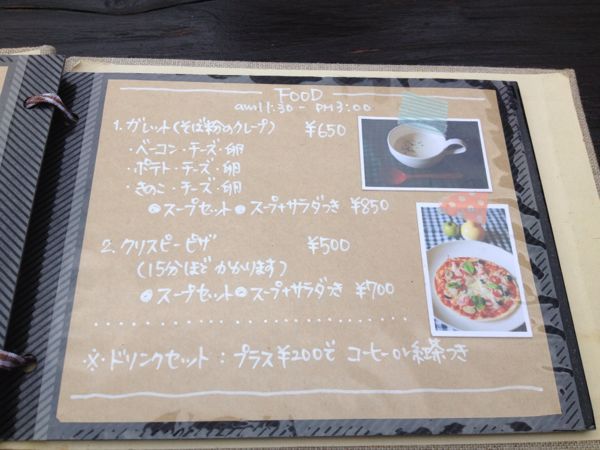 FOOD
am11:30 - PM3:00
1. ガレット(そば粉のクレープ) ¥650
・ベーコン・チーズ・卵
・ポテト・チーズ・卵
・きのこ・チーズ・卵
◎スープセット◎ スープ+サラダつき ¥850
2. クリスピーピザ ¥500
(15分ほどかかります)
◎スープセット◎ スープ+サラダつき ¥700
※・ドリンクセット：プラス¥200で コーヒーor紅茶つき